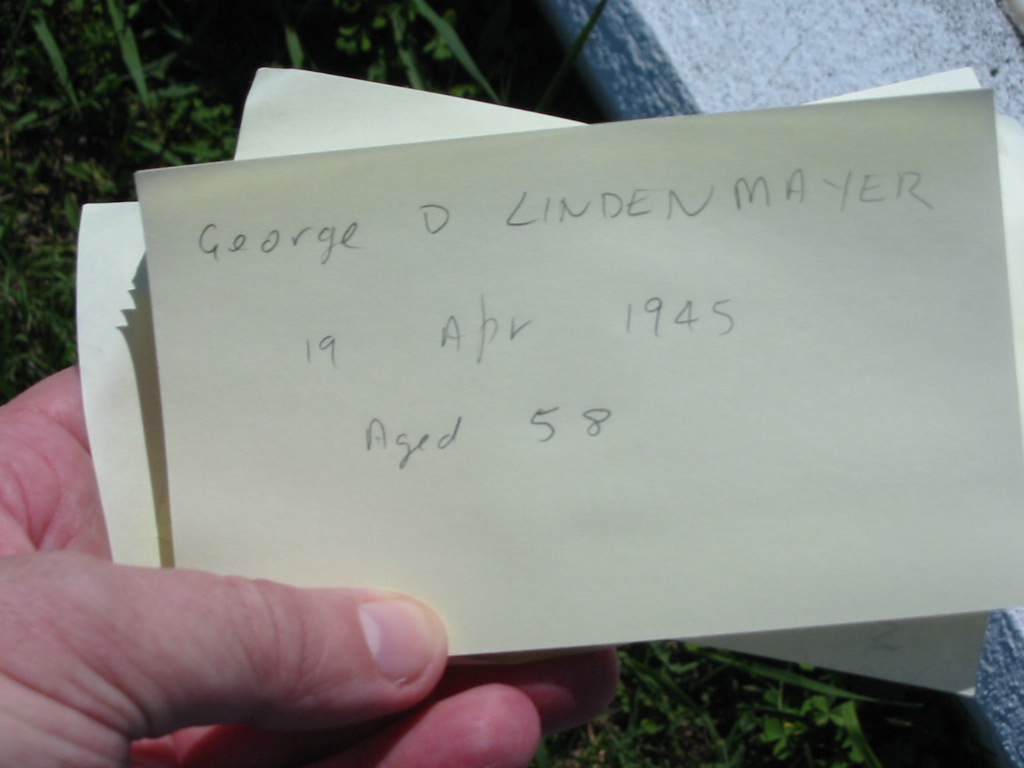 George D LINDENMAYER
19 Apr 1945
Aged 58